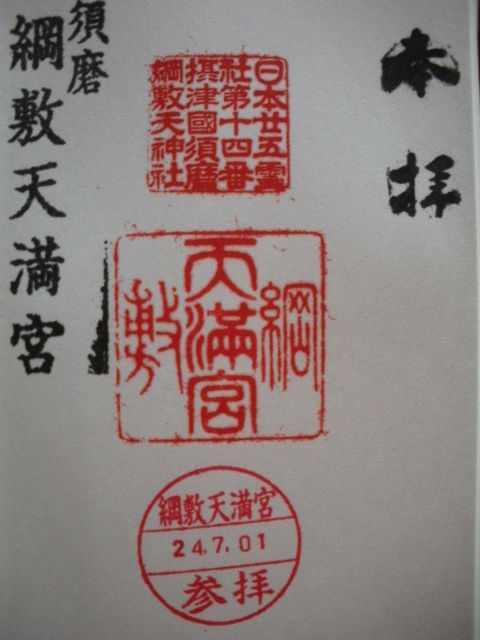 奉拝
日本廿五霊
社第十四番
摂津國須磨
綱敷天神社
綱
天満宮
敷
綱敷天満宮
24.7.01
参拝
須磨
綱敷天満宮